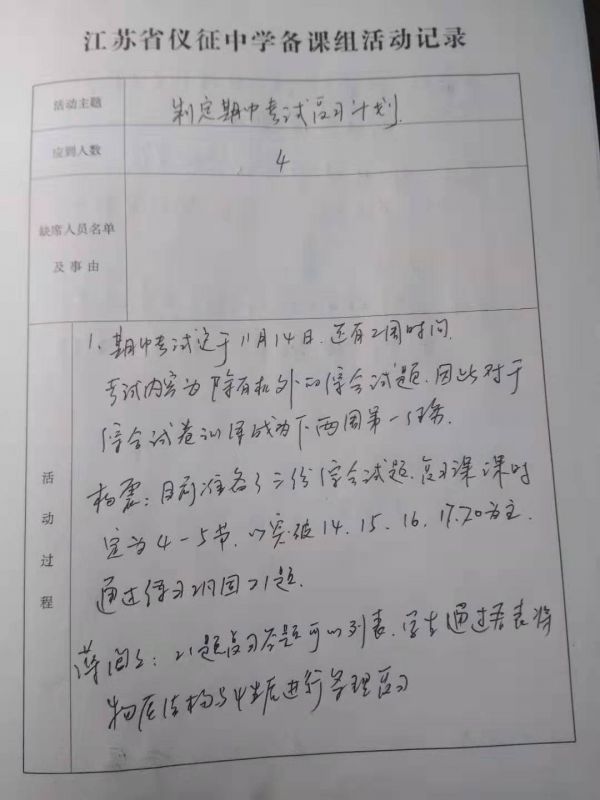 江苏省仪征中学备课组活动记录
活动主题
制定期中考试复习计划.
应到人数
4
缺席人员名单
及事由
活动过程
1、期中考试定于11月14日.还有2周时间.
考试内容为除有机外的综合试题.因此对于
综合试卷训练成为下两周第一任务.
杨震:目前准备了三份综合试题.复习课课时
定为4-5节.以突破14.15.16.17.20为主.
通过练习巩固21题.
21题复习答题可以列表.学生通过表将
物质结构与性质进行整理复习